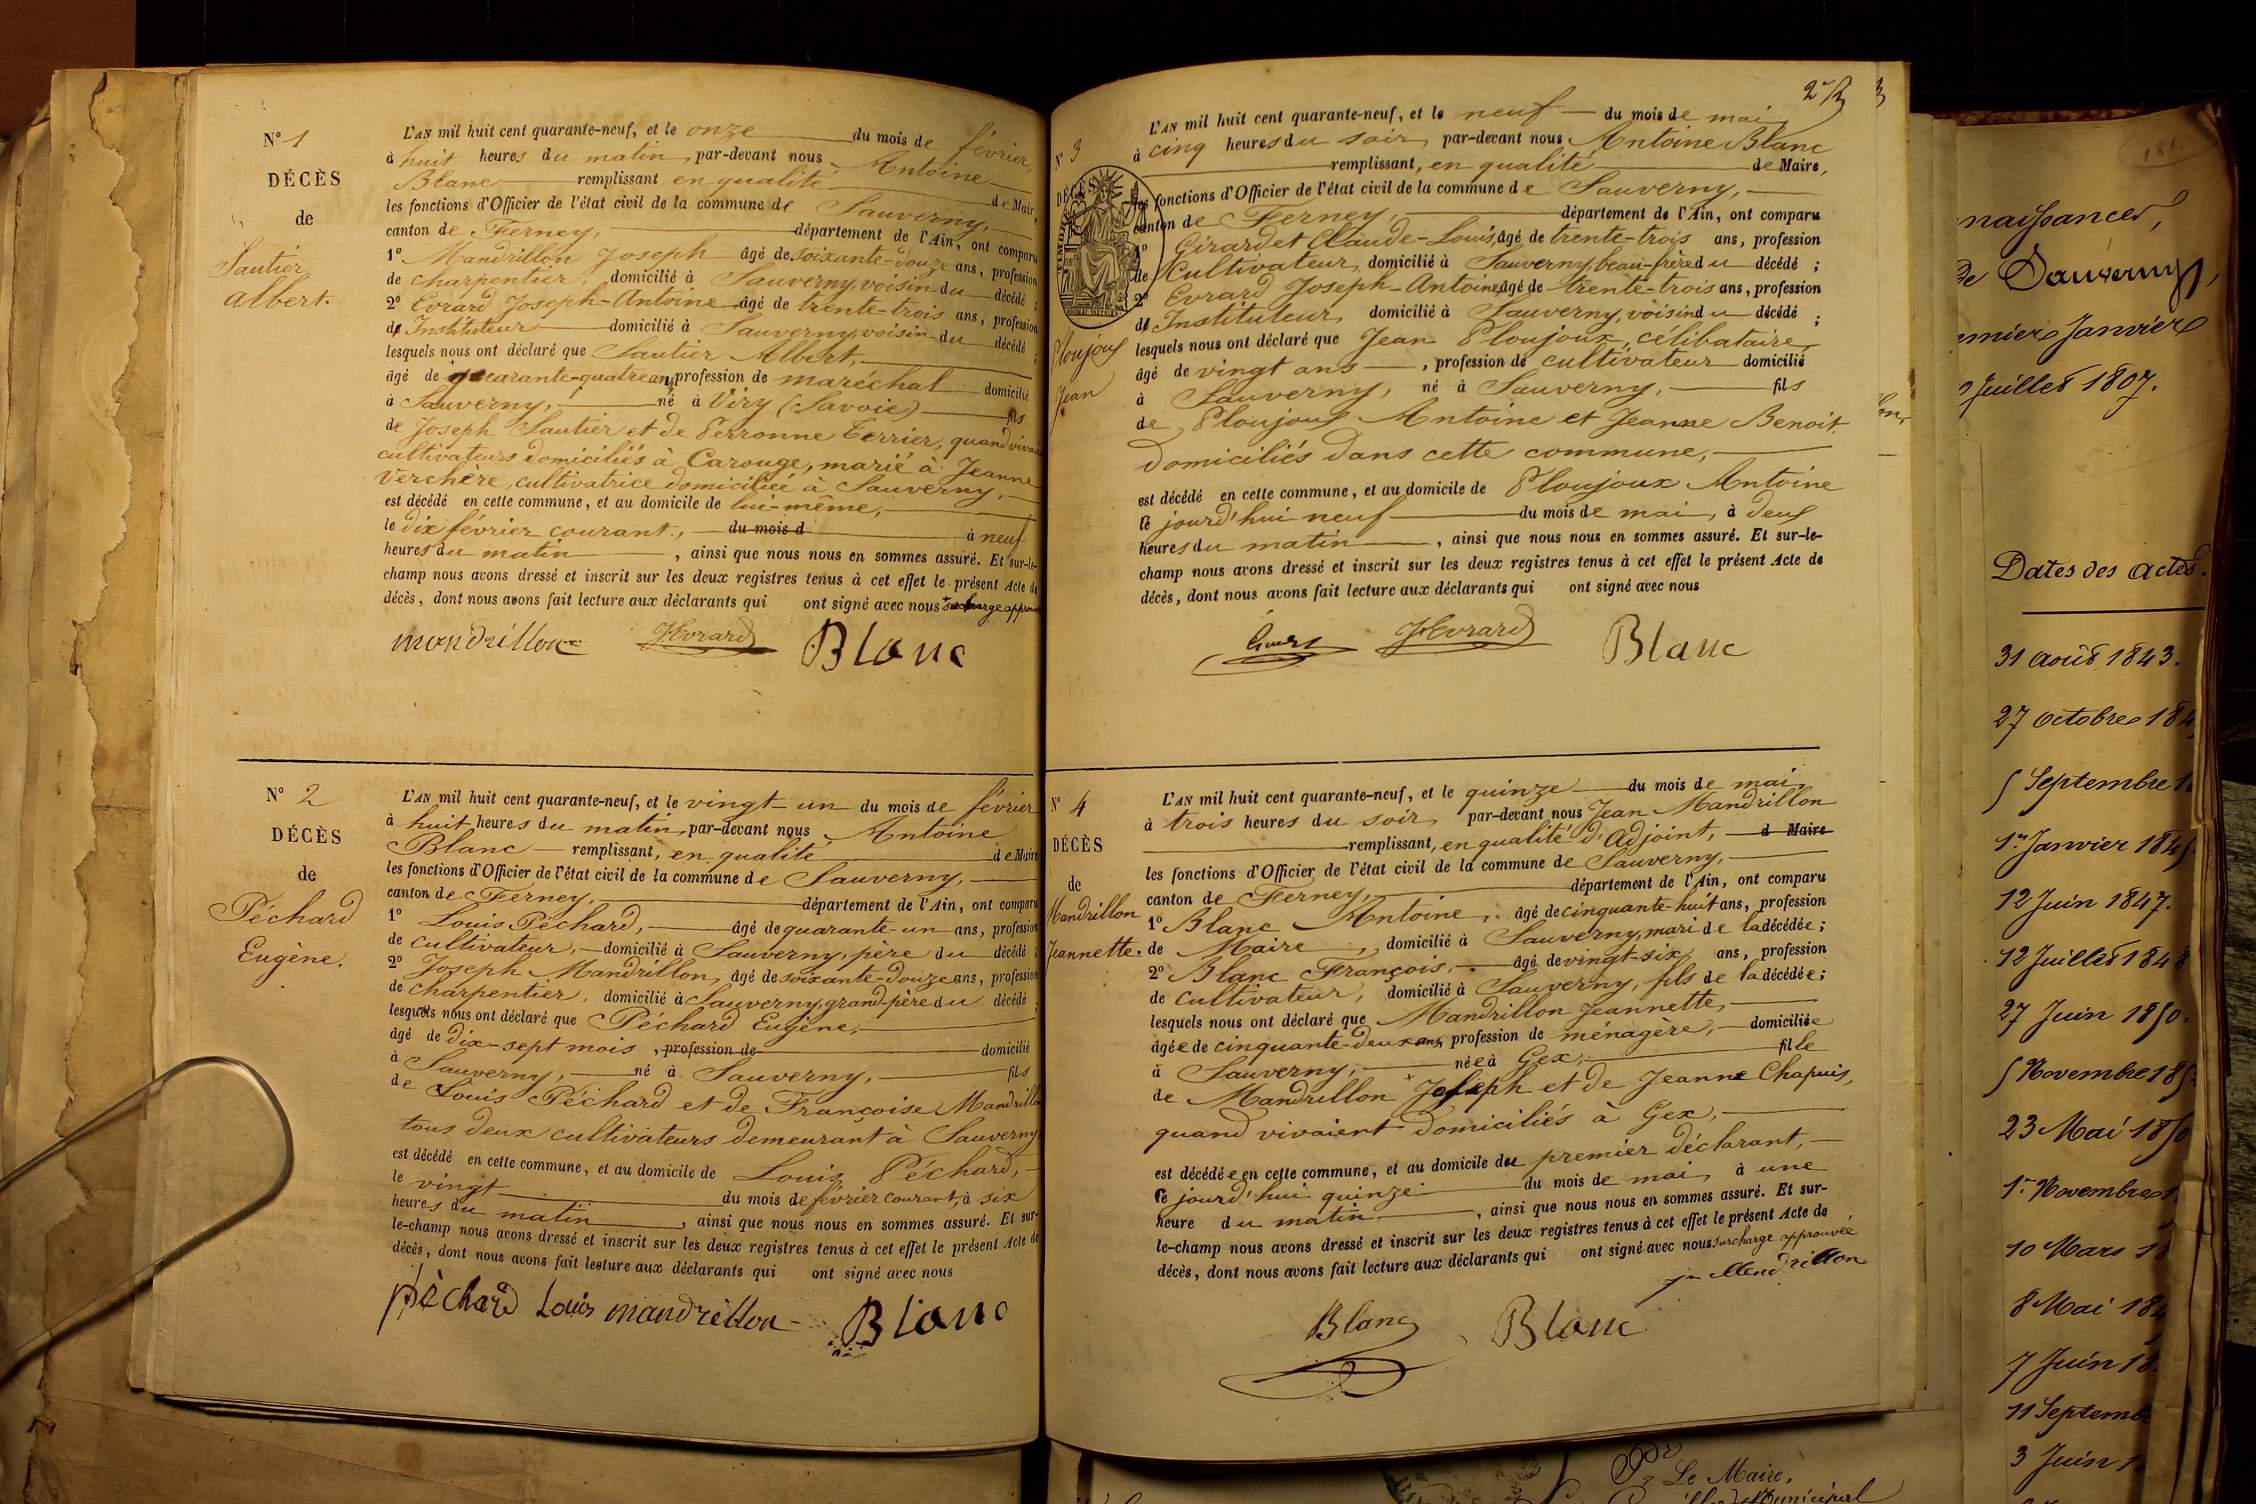 N° 1
DÉCÈS
de
Sautier
Albert.
L'AN mil huit cent quarante-neuf, et le onze du mois de février,
à huit heures du matin, par-devant nous Antoine
Blanc remplissant, en qualité de Maire,
les fonctions d'Officier de l'état civil de la commune de Sauverny,
canton de Ferney, département de l'Ain, ont comparu
1° Mandrillon Joseph âgé de soixante-douze ans, profession
de charpentier, domicilié à Sauverny, voisin du décédé ;
2° Evrard Joseph-Antoine âgé de trente-trois ans, profession
de Instituteur domicilié à Sauverny, voisin du décédé ;
lesquels nous ont déclaré que Sautier Albert,
âgé de quarante-quatre ans, profession de maréchal domicilié
à Sauverny, né à Viry (Savoie) fils
de Joseph Sautier et de Perronne Terrier, quand vivaient
cultivateurs domiciliés à Carouge, marié à Jeanne
Verchère, cultivatrice domiciliée à Sauverny,
est décédé en cette commune, et au domicile de lui-même,
le dix février courant, du mois d à neuf
heures du matin, ainsi que nous nous en sommes assuré. Et sur-le-
champ nous avons dressé et inscrit sur les deux registres tenus à cet effet le présent Acte de
décès, dont nous avons fait lecture aux déclarants qui ont signé avec nous surcharge approuvée
mandrillon JEvrard Blanc
N° 2
DÉCÈS
de
Péchard
Eugène.
L'AN mil huit cent quarante-neuf, et le vingt-un du mois de février
à huit heures du matin, par-devant nous Antoine
Blanc remplissant, en qualité de Maire
les fonctions d'Officier de l'état civil de la commune de Sauverny,
canton de Ferney, département de l'Ain, ont comparu
1° Louis Péchard, âgé de quarante-un ans, profession
de cultivateur, domicilié à Sauverny, père du décédé ;
2° Joseph Mandrillon, âgé de soixante-douze ans, profession
de charpentier, domicilié à Sauverny, grand-père du décédé ;
lesquels nous ont déclaré que Péchard Eugène,
âgé de dix-sept mois, profession de domicilié
à Sauverny, né à Sauverny, fils
de Louis Péchard et de Françoise Mandrillon
tous deux cultivateurs demeurant à Sauverny
est décédé en cette commune, et au domicile de Louis Péchard,
le vingt du mois de février courant, à six
heures du matin, ainsi que nous nous en sommes assuré. Et sur-
le-champ nous avons dressé et inscrit sur les deux registres tenus à cet effet le présent Acte de
décès, dont nous avons fait lecture aux déclarants qui ont signé avec nous
pèchard Louis mandrillon Blanc
N° 3
DÉCÈS
Ploujoux
Jean
L'AN mil huit cent quarante-neuf, et le neuf du mois de mai,
à cinq heures du soir, par-devant nous Antoine Blanc
remplissant, en qualité de Maire,
les fonctions d'Officier de l'état civil de la commune de Sauverny,
canton de Ferney, département de l'Ain, ont comparu
1° Girardet Claude-Louis, âgé de trente-trois ans, profession
de Cultivateur, domicilié à Sauverny, beau-frère du décédé ;
2° Evrard Joseph-Antoine, âgé de trente-trois ans, profession
de Instituteur, domicilié à Sauverny, voisin du décédé ;
lesquels nous ont déclaré que Jean Ploujoux, célibataire,
âgé de vingt ans, profession de cultivateur domicilié
à Sauverny, né à Sauverny, fils
de Ploujoux Antoine et Jeanne Benoit.
domiciliés dans cette commune,
est décédé en cette commune, et au domicile de Ploujoux Antoine
ce jourd'hui neuf du mois de mai, à deux
heures du matin, ainsi que nous nous en sommes assuré. Et sur-le-
champ nous avons dressé et inscrit sur les deux registres tenus à cet effet le présent Acte de
décès, dont nous avons fait lecture aux déclarants qui ont signé avec nous
JEvrard Blanc
N° 4
DÉCÈS
de
Mandrillon
Jeannette.
L'AN mil huit cent quarante-neuf, et le quinze du mois de mai,
à trois heures du soir, par-devant nous Jean Mandrillon
remplissant, en qualité d'Adjoint, d Maire
les fonctions d'Officier de l'état civil de la commune de Sauverny,
canton de Ferney, département de l'Ain, ont comparu
1° Blanc Antoine, âgé de cinquante-huit ans, profession
de Maire, domicilié à Sauverny, mari de la décédée ;
2° Blanc François, âgé de vingt-six ans, profession
de cultivateur, domicilié à Sauverny, fils de la décédée ;
lesquels nous ont déclaré que Mandrillon Jeannette,
âgée de cinquante-deux ans, profession de ménagère, domiciliée
à Sauverny, née à Gex, fille
de Mandrillon Joseph et de Jeanne Chapuis,
quand vivaient domiciliés à Gex,
est décédée en cette commune, et au domicile du premier déclarant,
ce jourd'hui quinze du mois de mai, à une
heure du matin, ainsi que nous nous en sommes assuré. Et sur-
le-champ nous avons dressé et inscrit sur les deux registres tenus à cet effet le présent Acte de
décès, dont nous avons fait lecture aux déclarants qui ont signé avec nous surcharge approuvée
jn Mandrillon
Blanc Blanc
181.
naissances,
de Sauverny,
Janvier
Juillet 1807.
Dates des actes.
31 août 1843.
27 octobre 184
5 Septembre 1
1er Janvier 184
12 Juin 1847.
12 Juillet 1848
27 Juin 1850.
5 Novembre 185
23 Mai 1850
1er Novembre 1
10 Mars 18
8 Mai 184
7 Juin 18
11 Septemb
3 Juin 1
Le Maire,